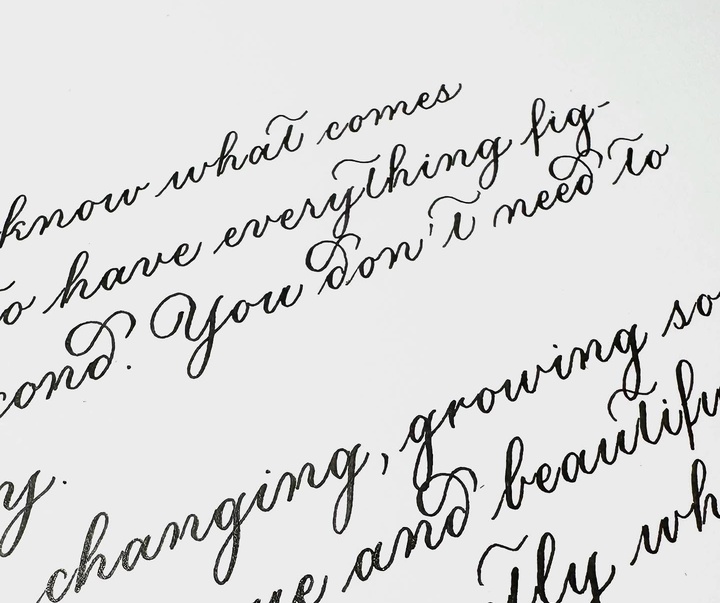 know what comes
to have everything fig-
cond. You don't need to
y.
changing, growing so
ue and beautifu
tly wh